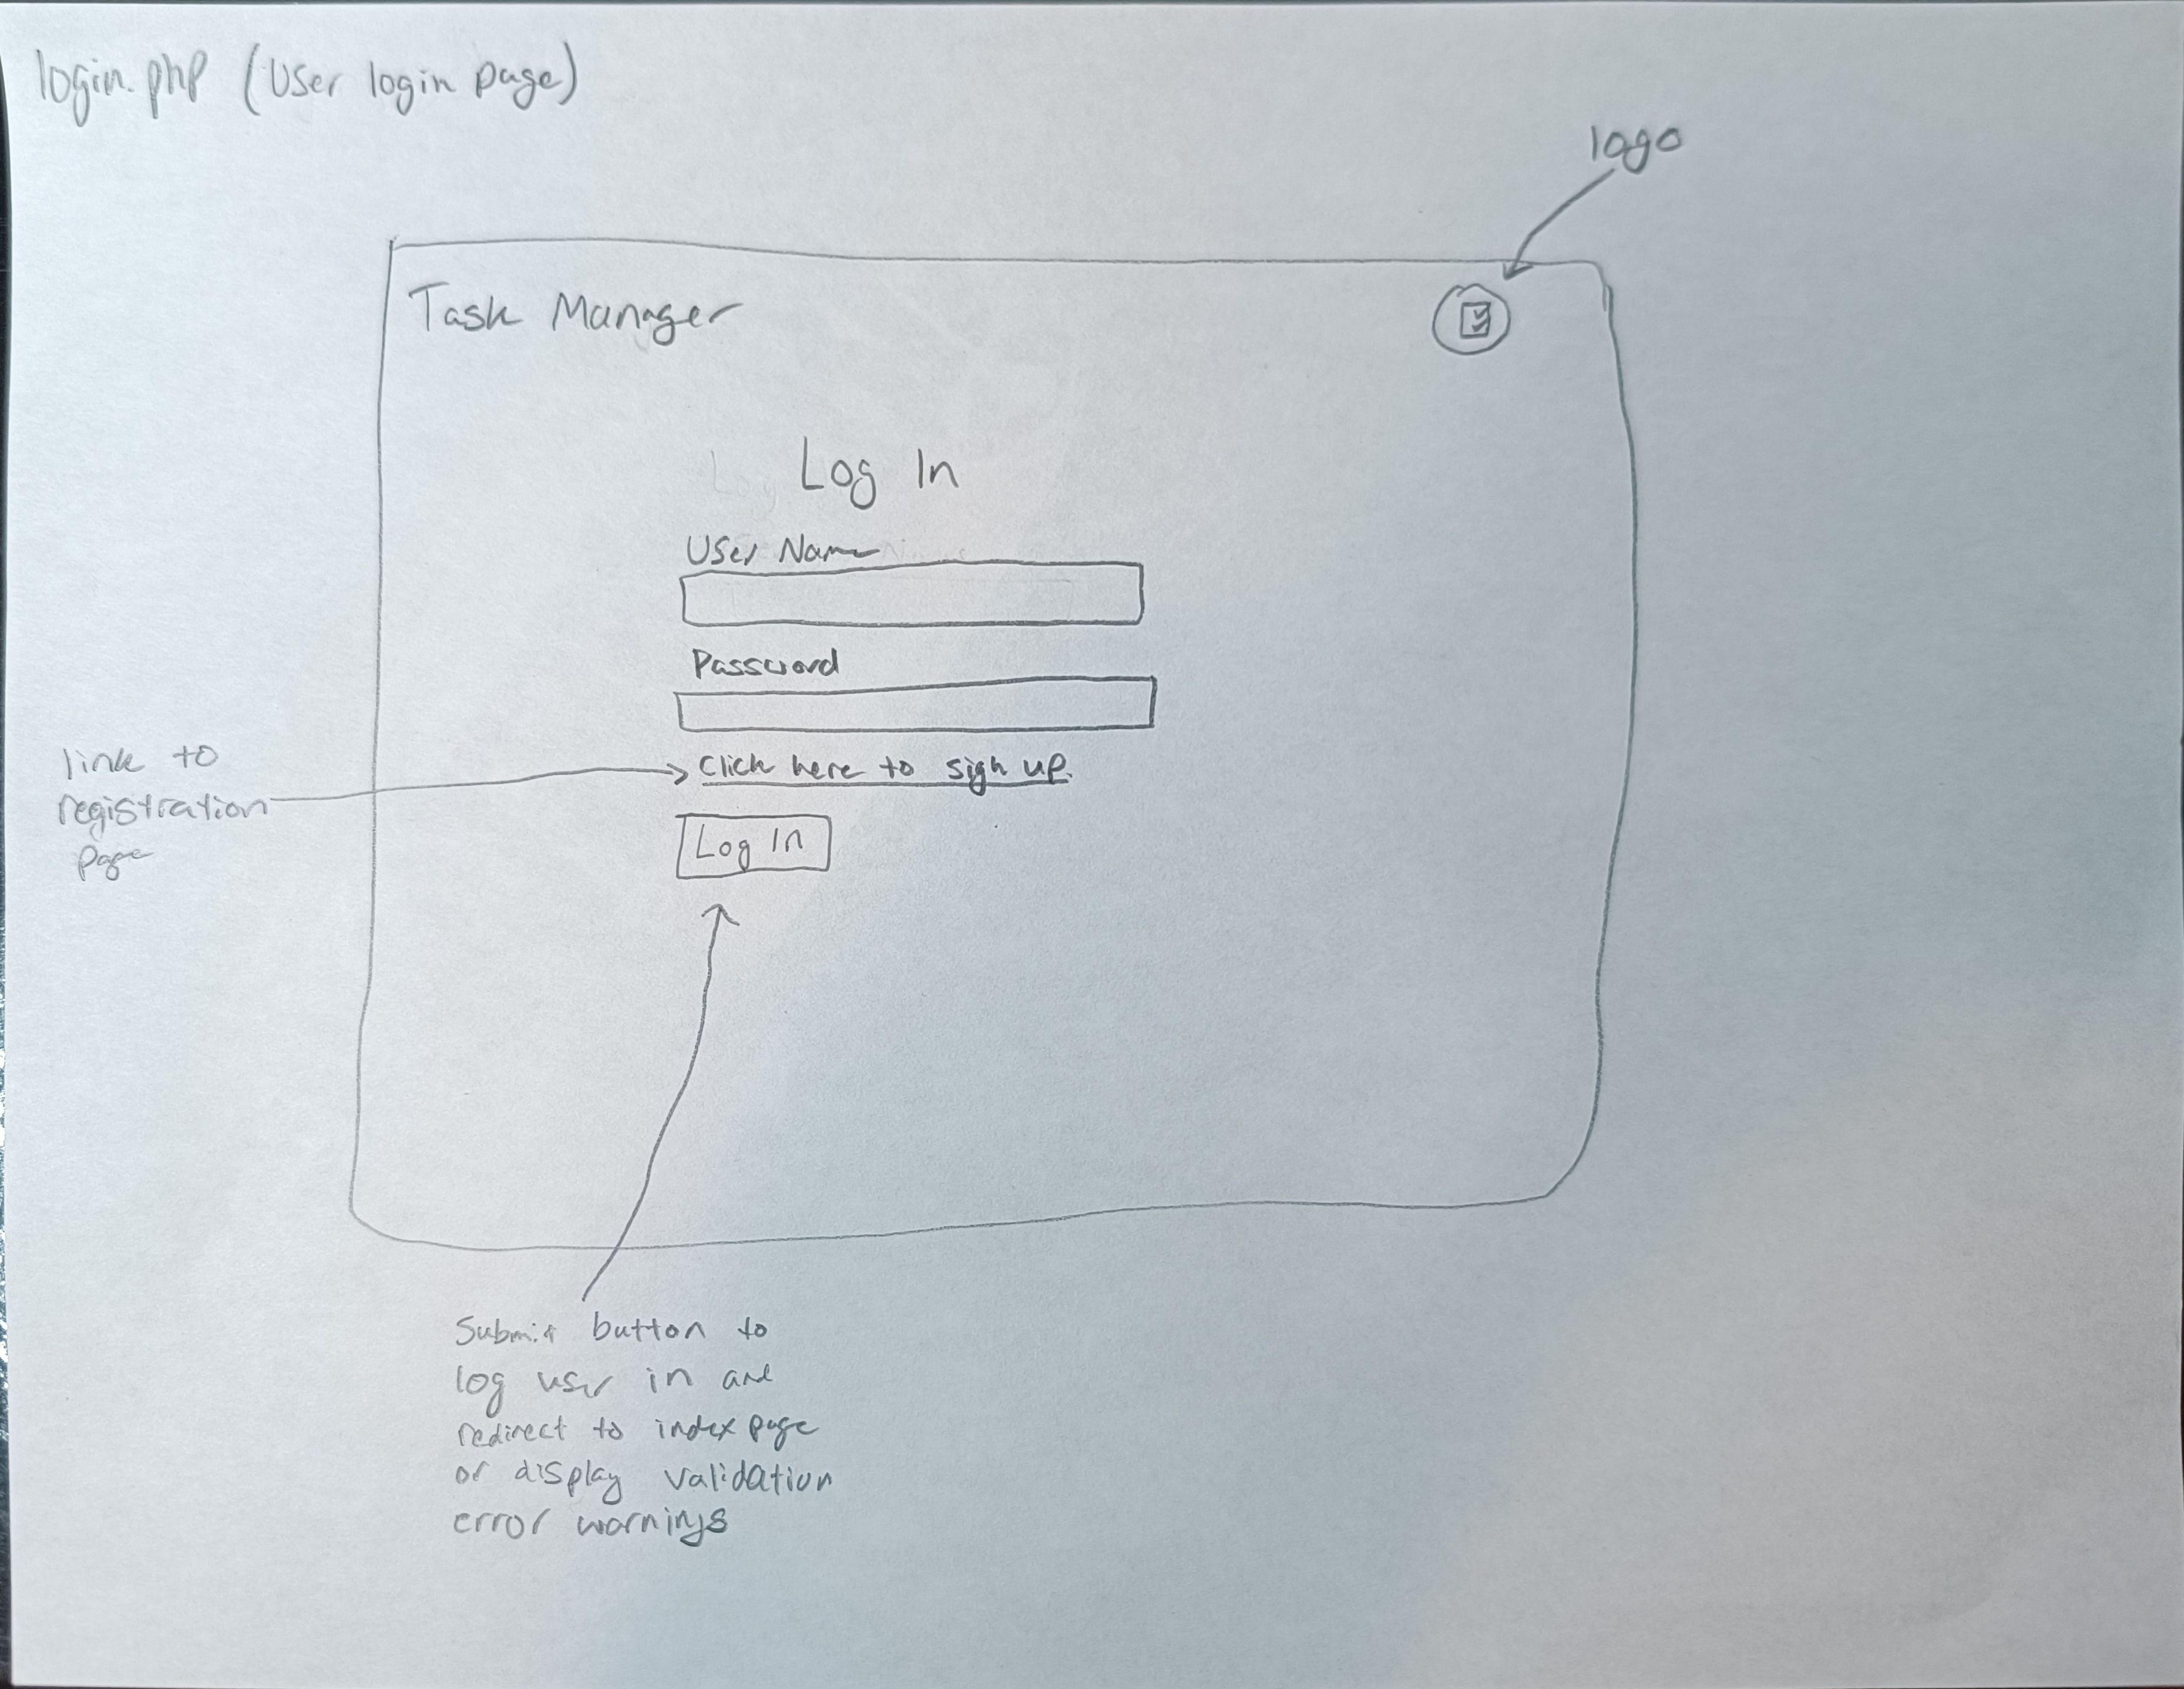 login.php (User login page)
logo
Task Manager
Log In
User Name
Password
link to
registration
page
Click here to sign up.
Log In
Submit button to
log user in and
redirect to index page
or display validation
error warnings